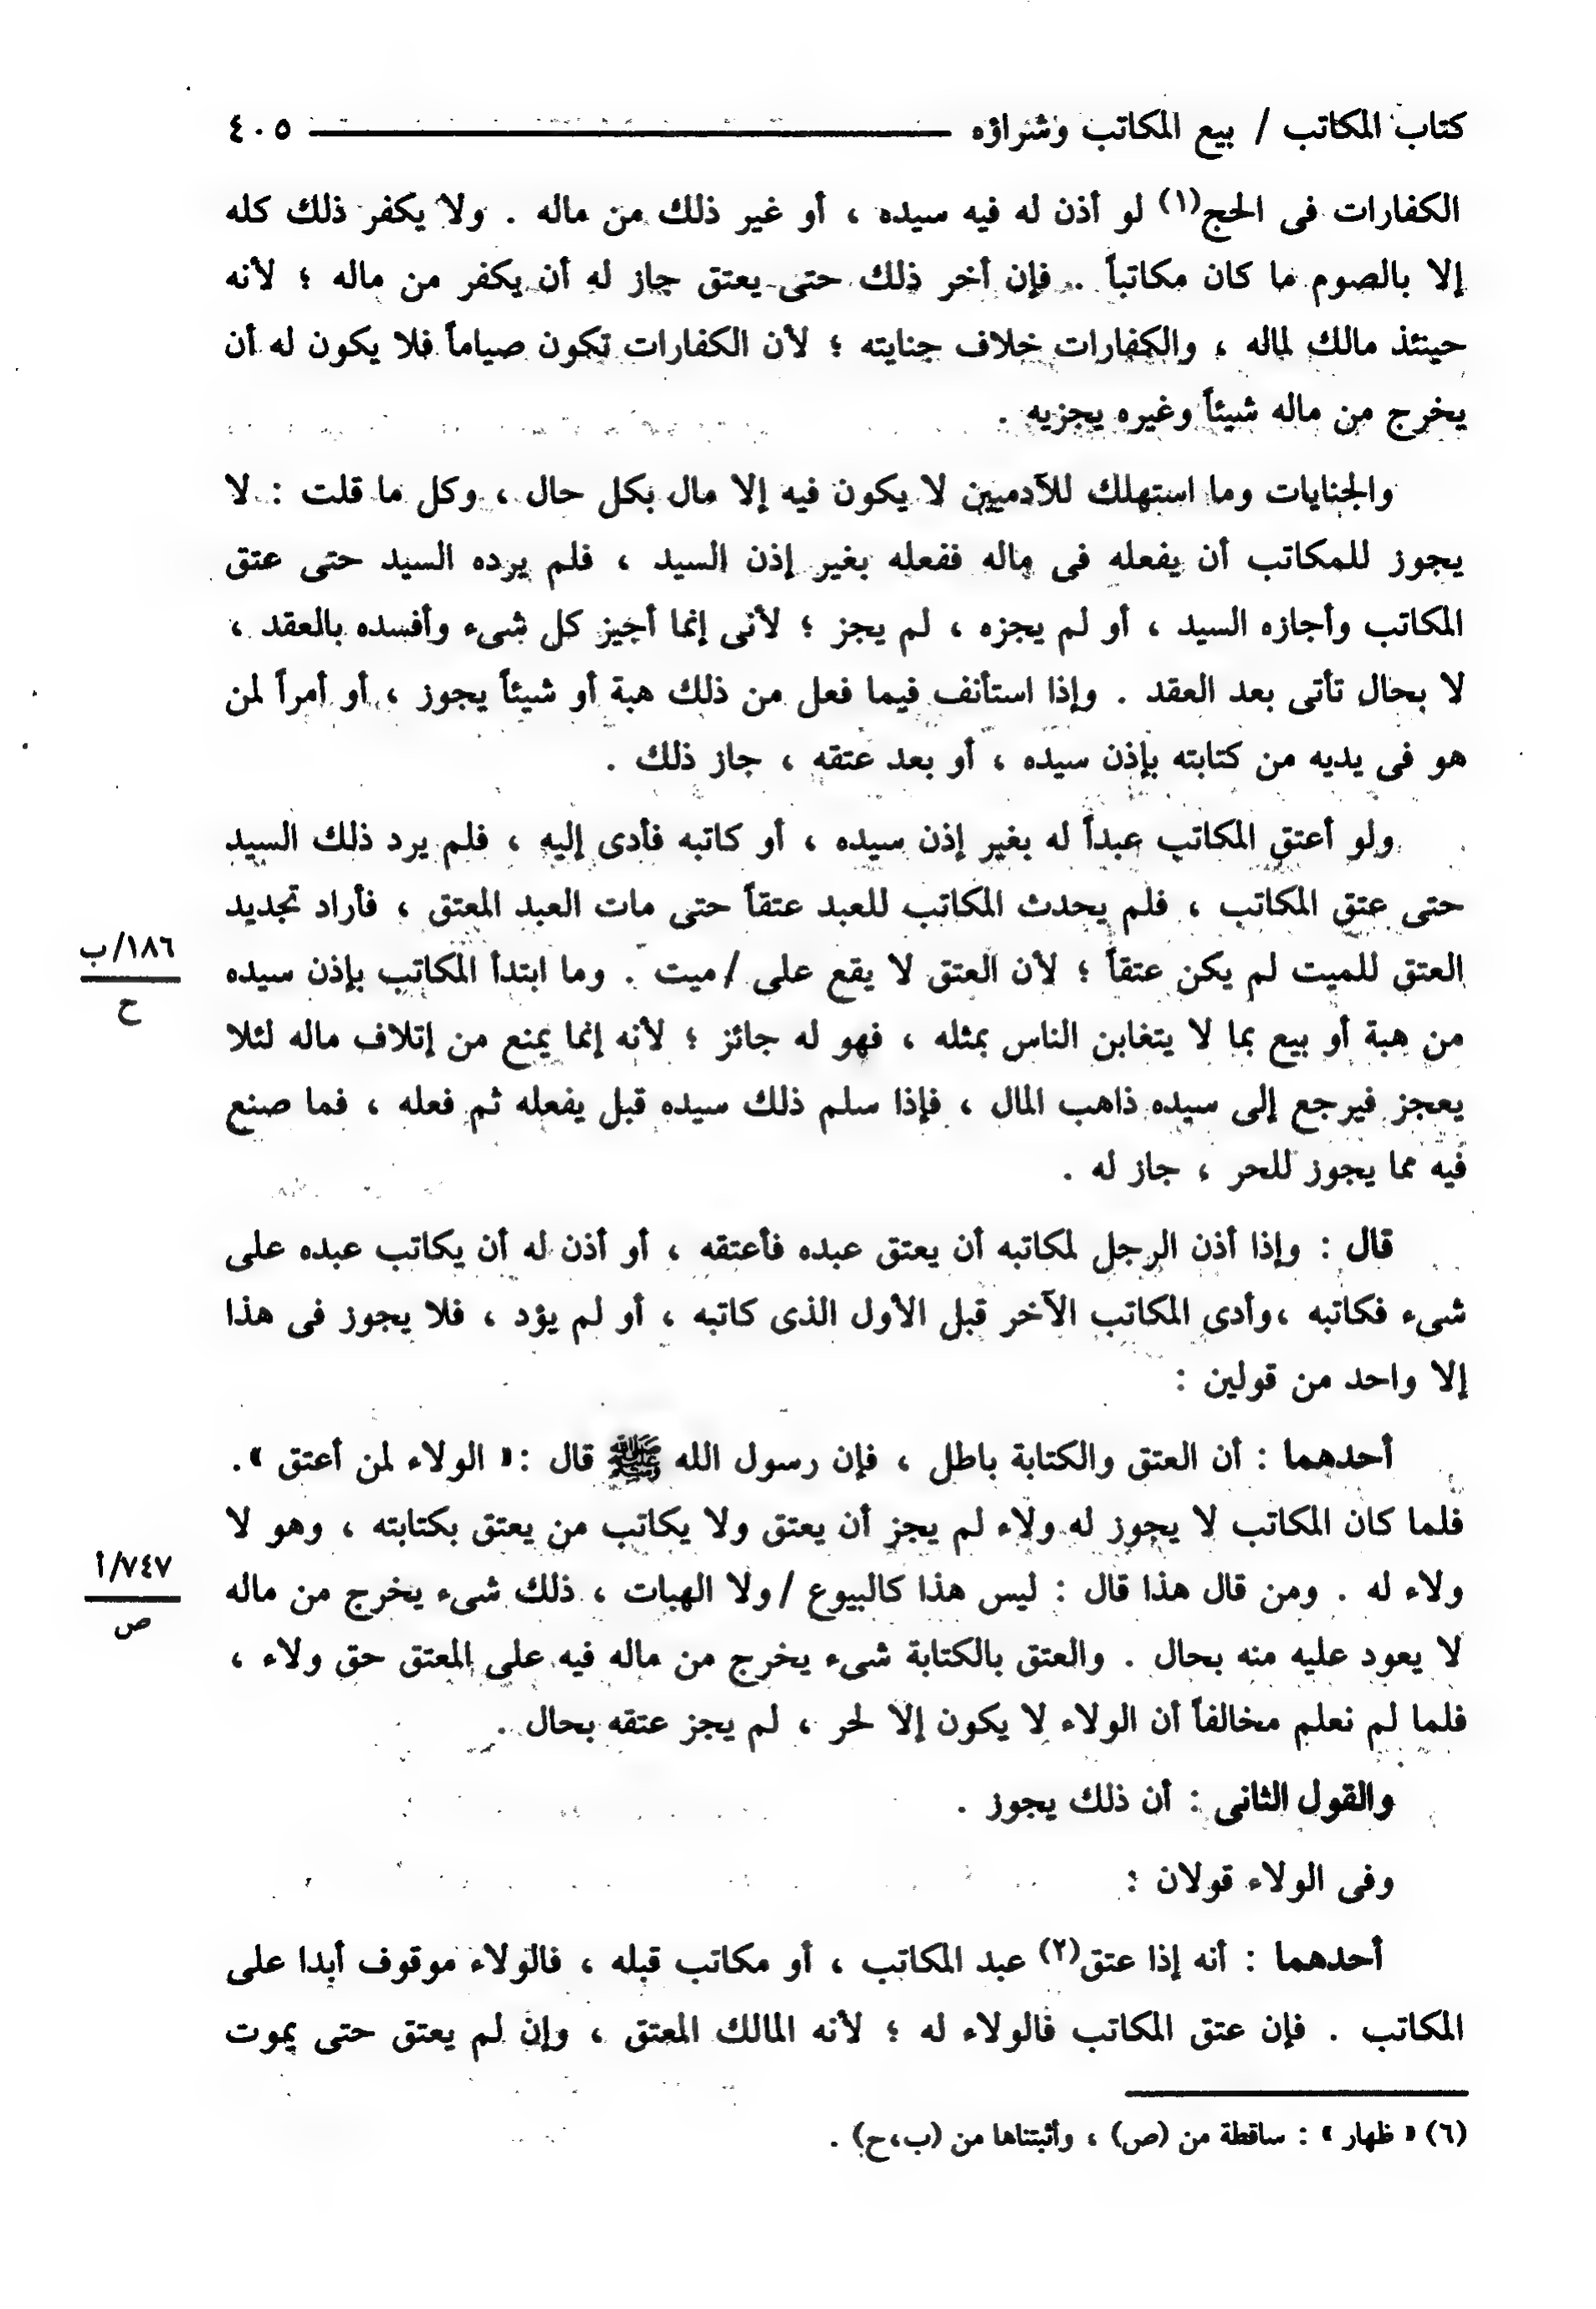 كتاب المكاتب / بيع المكاتب وشراؤه ٤٠٥
الكفارات فى الحج(١) لو أذن له فيه سيده ، أو غير ذلك من ماله . ولا يكفر ذلك كله
إلا بالصوم ما كان مكاتباً . فإن أخر ذلك حتى يعتق جاز له أن يكفر من ماله ؛ لأنه
حينئذ مالك لماله ، والكفارات خلاف جنايته ؛ لأن الكفارات تكون صياماً فلا يكون له أن
يخرج من ماله شيئاً وغيره يجزيه .
والجنايات وما استهلك للآدميين لا يكون فيه إلا مال بكل حال ، وكل ما قلت : لا
يجوز للمكاتب أن يفعله فى ماله ففعله بغير إذن السيد ، فلم يرده السيد حتى عتق
المكاتب وأجازه السيد ، أو لم يجزه ، لم يجز ؛ لأنى إنما أجيز كل شىء وأفسده بالعقد ،
لا بحال تأتى بعد العقد . وإذا استأنف فيما فعل من ذلك هبة أو شيئاً يجوز ، أو أمراً لمن
هو فى يديه من كتابته بإذن سيده ، أو بعد عتقه ، جاز ذلك .
ولو أعتق المكاتب عبداً له بغير إذن سيده ، أو كاتبه فأدى إليه ، فلم يرد ذلك السيد
حتى عتق المكاتب ، فلم يحدث المكاتب للعبد عتقاً حتى مات العبد المعتق ، فأراد تجديد
العتق للميت لم يكن عتقاً ؛ لأن العتق لا يقع على / ميت . وما ابتدأ المكاتب بإذن سيده
١٨٦/ب
ح
من هبة أو بيع بما لا يتغابن الناس بمثله ، فهو له جائز ؛ لأنه إنما يمنع من إتلاف ماله لئلا
يعجز فيرجع إلى سيده ذاهب المال ، فإذا سلم ذلك سيده قبل يفعله ثم فعله ، فما صنع
فيه مما يجوز للحر ، جاز له .
قال : وإذا أذن الرجل لمكاتبه أن يعتق عبده فأعتقه ، أو أذن له أن يكاتب عبده على
شىء فكاتبه ،وأدى المكاتب الآخر قبل الأول الذى كاتبه ، أو لم يؤد ، فلا يجوز فى هذا
إلا واحد من قولين :
أحدهما : أن العتق والكتابة باطل ، فإن رسول الله ﷺ قال :« الولاء لمن أعتق ».
فلما كان المكاتب لا يجوز له ولاء لم يجز أن يعتق ولا يكاتب من يعتق بكتابته ، وهو لا
ولاء له . ومن قال هذا قال : ليس هذا كالبيوع / ولا الهبات ، ذلك شىء يخرج من ماله
٧٤٧/أ
ص
لا يعود عليه منه بحال . والعتق بالكتابة شىء يخرج من ماله فيه على المعتق حق ولاء ،
فلما لم نعلم مخالفاً أن الولاء لا يكون إلا لحر ، لم يجز عتقه بحال .
والقول الثانى : أن ذلك يجوز .
وفى الولاء قولان :
أحدهما : أنه إذا عتق(٢) عبد المكاتب ، أو مكاتب قبله ، فالولاء موقوف أبدا على
المكاتب . فإن عتق المكاتب فالولاء له ؛ لأنه المالك المعتق ، وإن لم يعتق حتى يموت
(٦) « ظهار » : ساقطة من (ص) ، وأثبتناها من (ب،ح) .